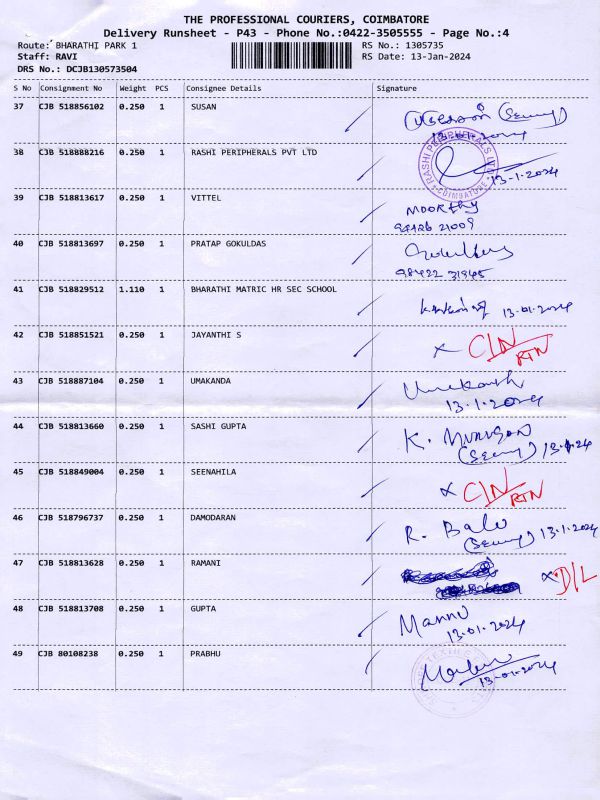 THE PROFESSIONAL COURIERS, COIMBATORE
Delivery Runsheet - P43 - Phone No.:0422-3505555 - Page No.:4
Route: BHARATHI PARK 1 RS No.: 1305735
Staff: RAVI RS Date: 13-Jan-2024
DRS No.: DCJB130573504
S No Consignment No Weight PCS Consignee Details Signature
37 CJB 518856102 0.250 1 SUSAN
38 CJB 518888216 0.250 1 RASHI PERIPHERALS PVT LTD 13-1-2024
RASHI PERIPHERALS LTD
COIMBATORE
39 CJB 518813617 0.250 1 VITTEL MOORTHY
40 CJB 518813697 0.250 1 PRATAP GOKULDAS
98422 31845
41 CJB 518829512 1.110 1 BHARATHI MATRIC HR SEC SCHOOL 13-01-2024
42 CJB 518851521 0.250 1 JAYANTHI S x CIN/RTN
43 CJB 518887104 0.250 1 UMAKANDA
13-1-2024
44 CJB 518813660 0.250 1 SASHI GUPTA K. Murugan
45 CJB 518849004 0.250 1 SEENAHILA x CIN/RTN
46 CJB 518796737 0.250 1 DAMODARAN R. Balu 13-1-2024
47 CJB 518813628 0.250 1 RAMANI x D/L
48 CJB 518813708 0.250 1 GUPTA Mannu
13-01-2024
49 CJB 80108238 0.250 1 PRABHU
13-01-2024